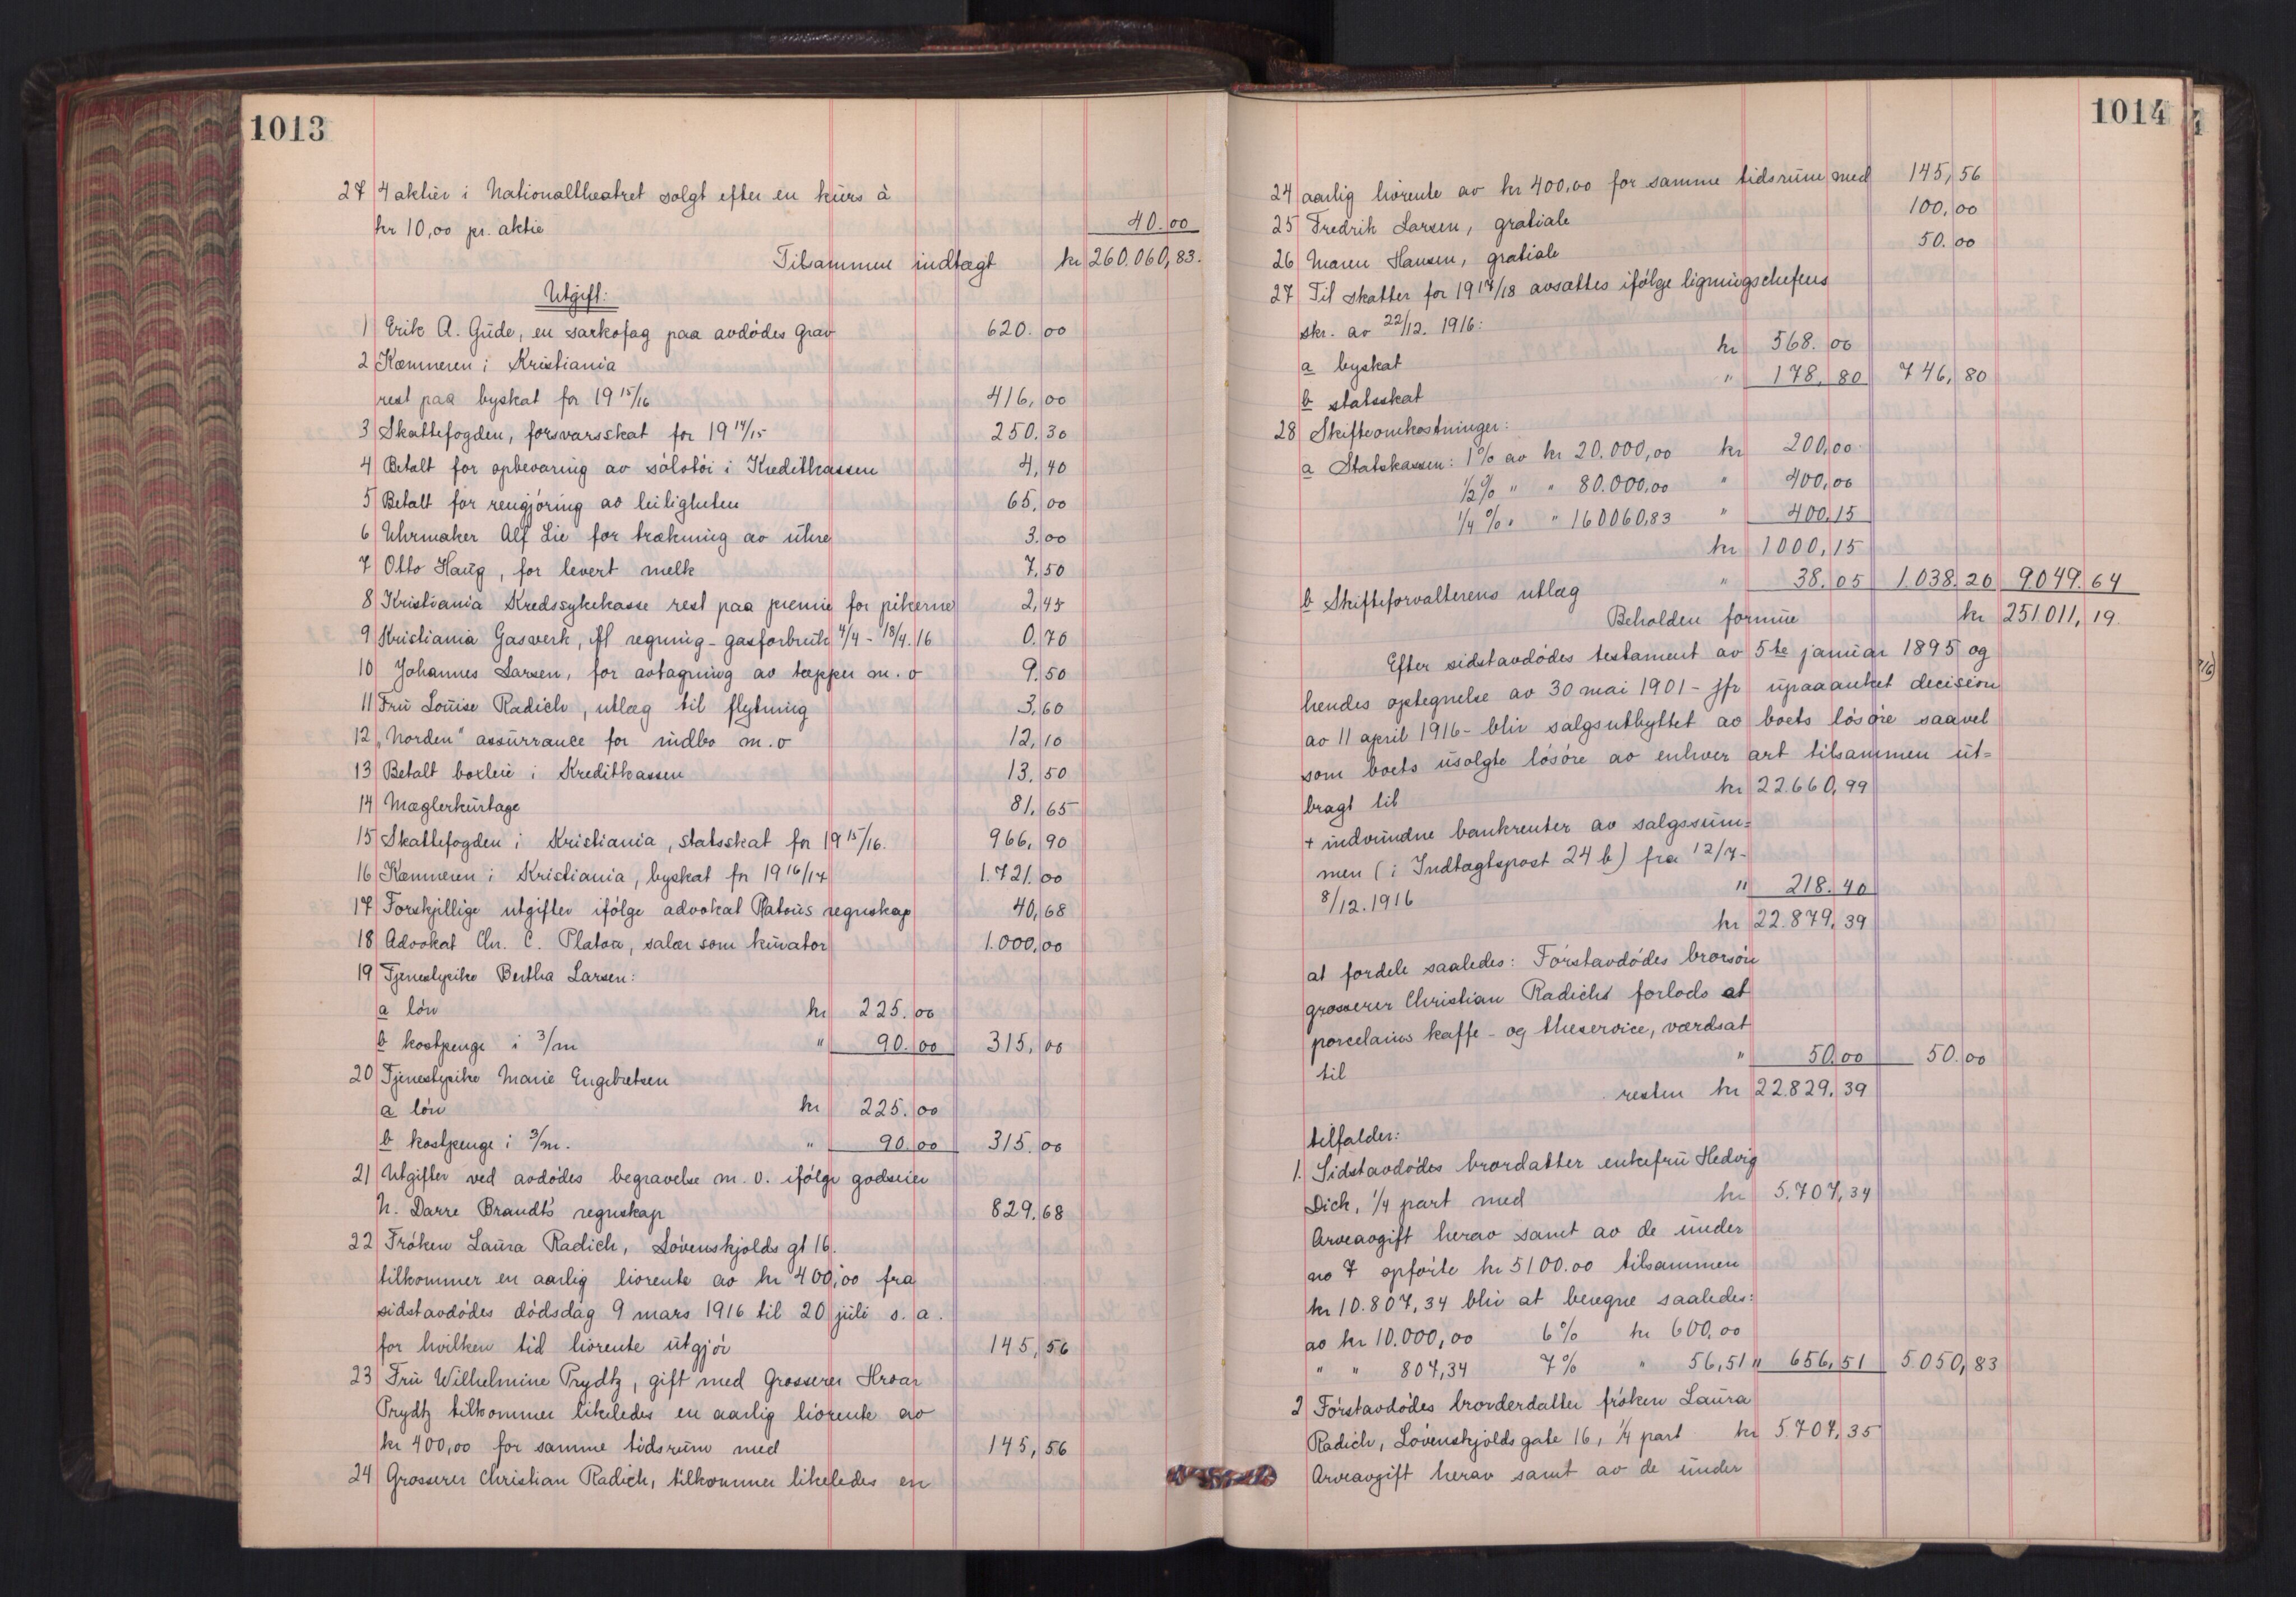 1013
27 4 aktier i Nationaltheatret solgt efter en kurs à
kr 10,00 pr. aktie 40.00
Tilsammen indtægt kr 260.060,83.
Utgift:
1 Erik A. Gude, en sarkofag paa avdødes grav 620.00
2 Kæmneren i Kristiania
rest paa byskat for 19 15/16 416,00
3 Skattefogden, forsvarsskat for 19 14/15 250.30
4 Betalt for opbevaring av sølvtøi i Kreditkassen 4,40
5 Betalt for rengjøring av leiligheten 65,00
6 Uhrmaker Alf Lie for trækning av uhre 3.00
7 Otto Haug, for levert melk 7,50
8 Kristiania Kredssykekasse rest paa premie for pikerne 2,45
9 Kristiania Gasverk, regning - gasforbruk 4/4 - 18/4.16 0.70
10 Johannes Larsen, for avtagning av tæpper m.v 9.50
11 Fru Louise Radich, utlæg til flytning 3,60
12 „Norden" assurrance for indbo m.v 12,10
13 Betalt boxleie i Kreditkassen 13.50
14 Mæglerkurtage 81,65
15 Skattefogden i Kristiania, statsskat for 19 15/16. 966,90
16 Kæmneren i Kristiania, byskat for 19 16/17 1.721.00
17 Forskjellige utgifter ifølge advokat Platous regnskap 40,68
18 Advokat Chr. C. Platou, salær som kurator 1.000,00
19 Tjenestepike Bertha Larsen:
a løn kr 225.00
b kostpenge i 3/m " 90.00 315,00
20 Tjenestepike Marie Engebretsen
a løn kr 225.00
b kostpenge i 3/m. " 90.00 315.00
21 Utgifter ved avdødes begravelse m.v. ifølge godseier
N. Darre Brandt's regnskap 829.68
22 Frøken Laura Radich, Løvenskjolds gt 16.
tilkommer en aarlig livrente av kr 400,00 fra
sidstavdødes dødsdag 9 mars 1916 til 20 juli s.a.
for hvilken tid livrente utgjør 145,56
23 Fru Wilhelmine Prydtz, gift med Grosserer Hroar
Prydtz tilkommer likeledes en aarlig livrente av
kr 400,00 for samme tidsrum med 145,56
24 Grosserer Christian Radich, tilkommer likeledes en
1014
24 aarlig livrente av kr 400,00 for samme tidsrum med 145,56
25 Fredrik Larsen, gratiale 100,00
26 Maren Hansen, gratiale 50.00
27 Til skatter for 19 17/18 avsættes ifølge ligningschefens
skr. av 22/12. 1916:
a byskat kr 568.00
b statsskat " 178,80 746,80
28 Skifteomkostninger:
a Statskassen: 1% av kr 20.000,00 kr 200,00
1/2% " " 80.000,00 " 400,00
1/4 % " " 160060,83 " 400,15
kr 1000,15
b Skifteforvalterens utlæg " 38.05 1.038.20 9049.64
Beholden formue kr 251.011,19.
Efter sidstavdødes testament av 5te januar 1895 og
hendes optegnelse av 30 mai 1901 - jfr upaaanket decision
av 11 april 1916 - blir salgsutbyttet av boets løsøre saavel
som boets usolgte løsøre av enhver art tilsammen ut=
bragt til kr 22.660,99
+ indvundne bankrenter av salgssum=
men (i Indtægtspost 24 b) fra 12/7 -
8/12.1916 " 218.40
kr 22.879,39
at fordele saaledes: Førstavdødes brorsøn
grosserer Christian Radichs forlods at
porcelains kaffe- og theservice, værdsat
til " 50.00 50.00
resten kr 22.829.39
tilfalder:
1. Sidstavdødes brordatter enkefru Hedvig
Dick, 1/4 part med kr 5.707,34
Arveavgift herav samt av de under
no 7 opførte kr 5100.00 tilsammen
kr 10.807,34 blir at beregne saaledes:
av kr 10.000,00 6% kr 600,00
" " 807,34 7% " 56,51 " 656,51 5.050,83
2 Førstavdødes brorderdatter frøken Laura
Radich, Løvenskjolds gate 16, 1/4 part kr 5.707,35
Arveavgift herav samt av de under